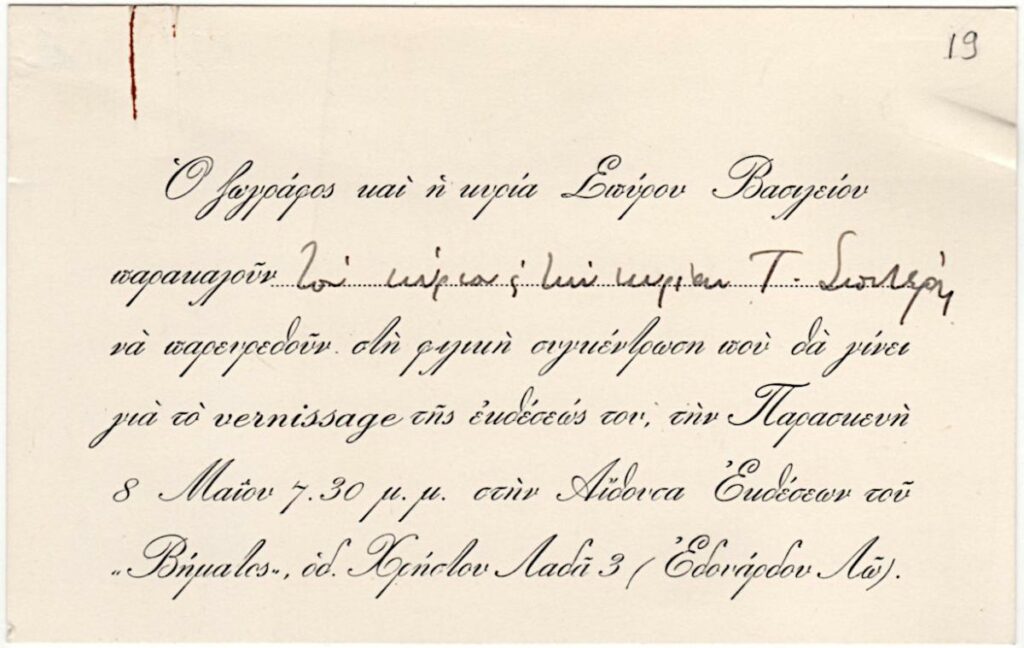 19
Ὁ ζωγράφος καὶ ἡ κυρία Σπύρου Βασιλείου
παρακαλοῦν τὸν κύριον & τὴν κυρίαν Τ. Σπητέρη
νὰ παρευρεθοῦν στὴ φιλικὴ συγκέντρωση ποὺ θὰ γίνει
γιὰ τὸ vernissage τῆς ἐκθέσεώς του, τὴν Παρασκευὴ
8 Μαΐου 7.30 μ.μ. στὴν Αἴθουσα Ἐκθέσεων τοῦ
„Βήματος„, ὁδ. Χρήστου Λαδᾶ 3 (Ἐδουάρδου Λῶ).